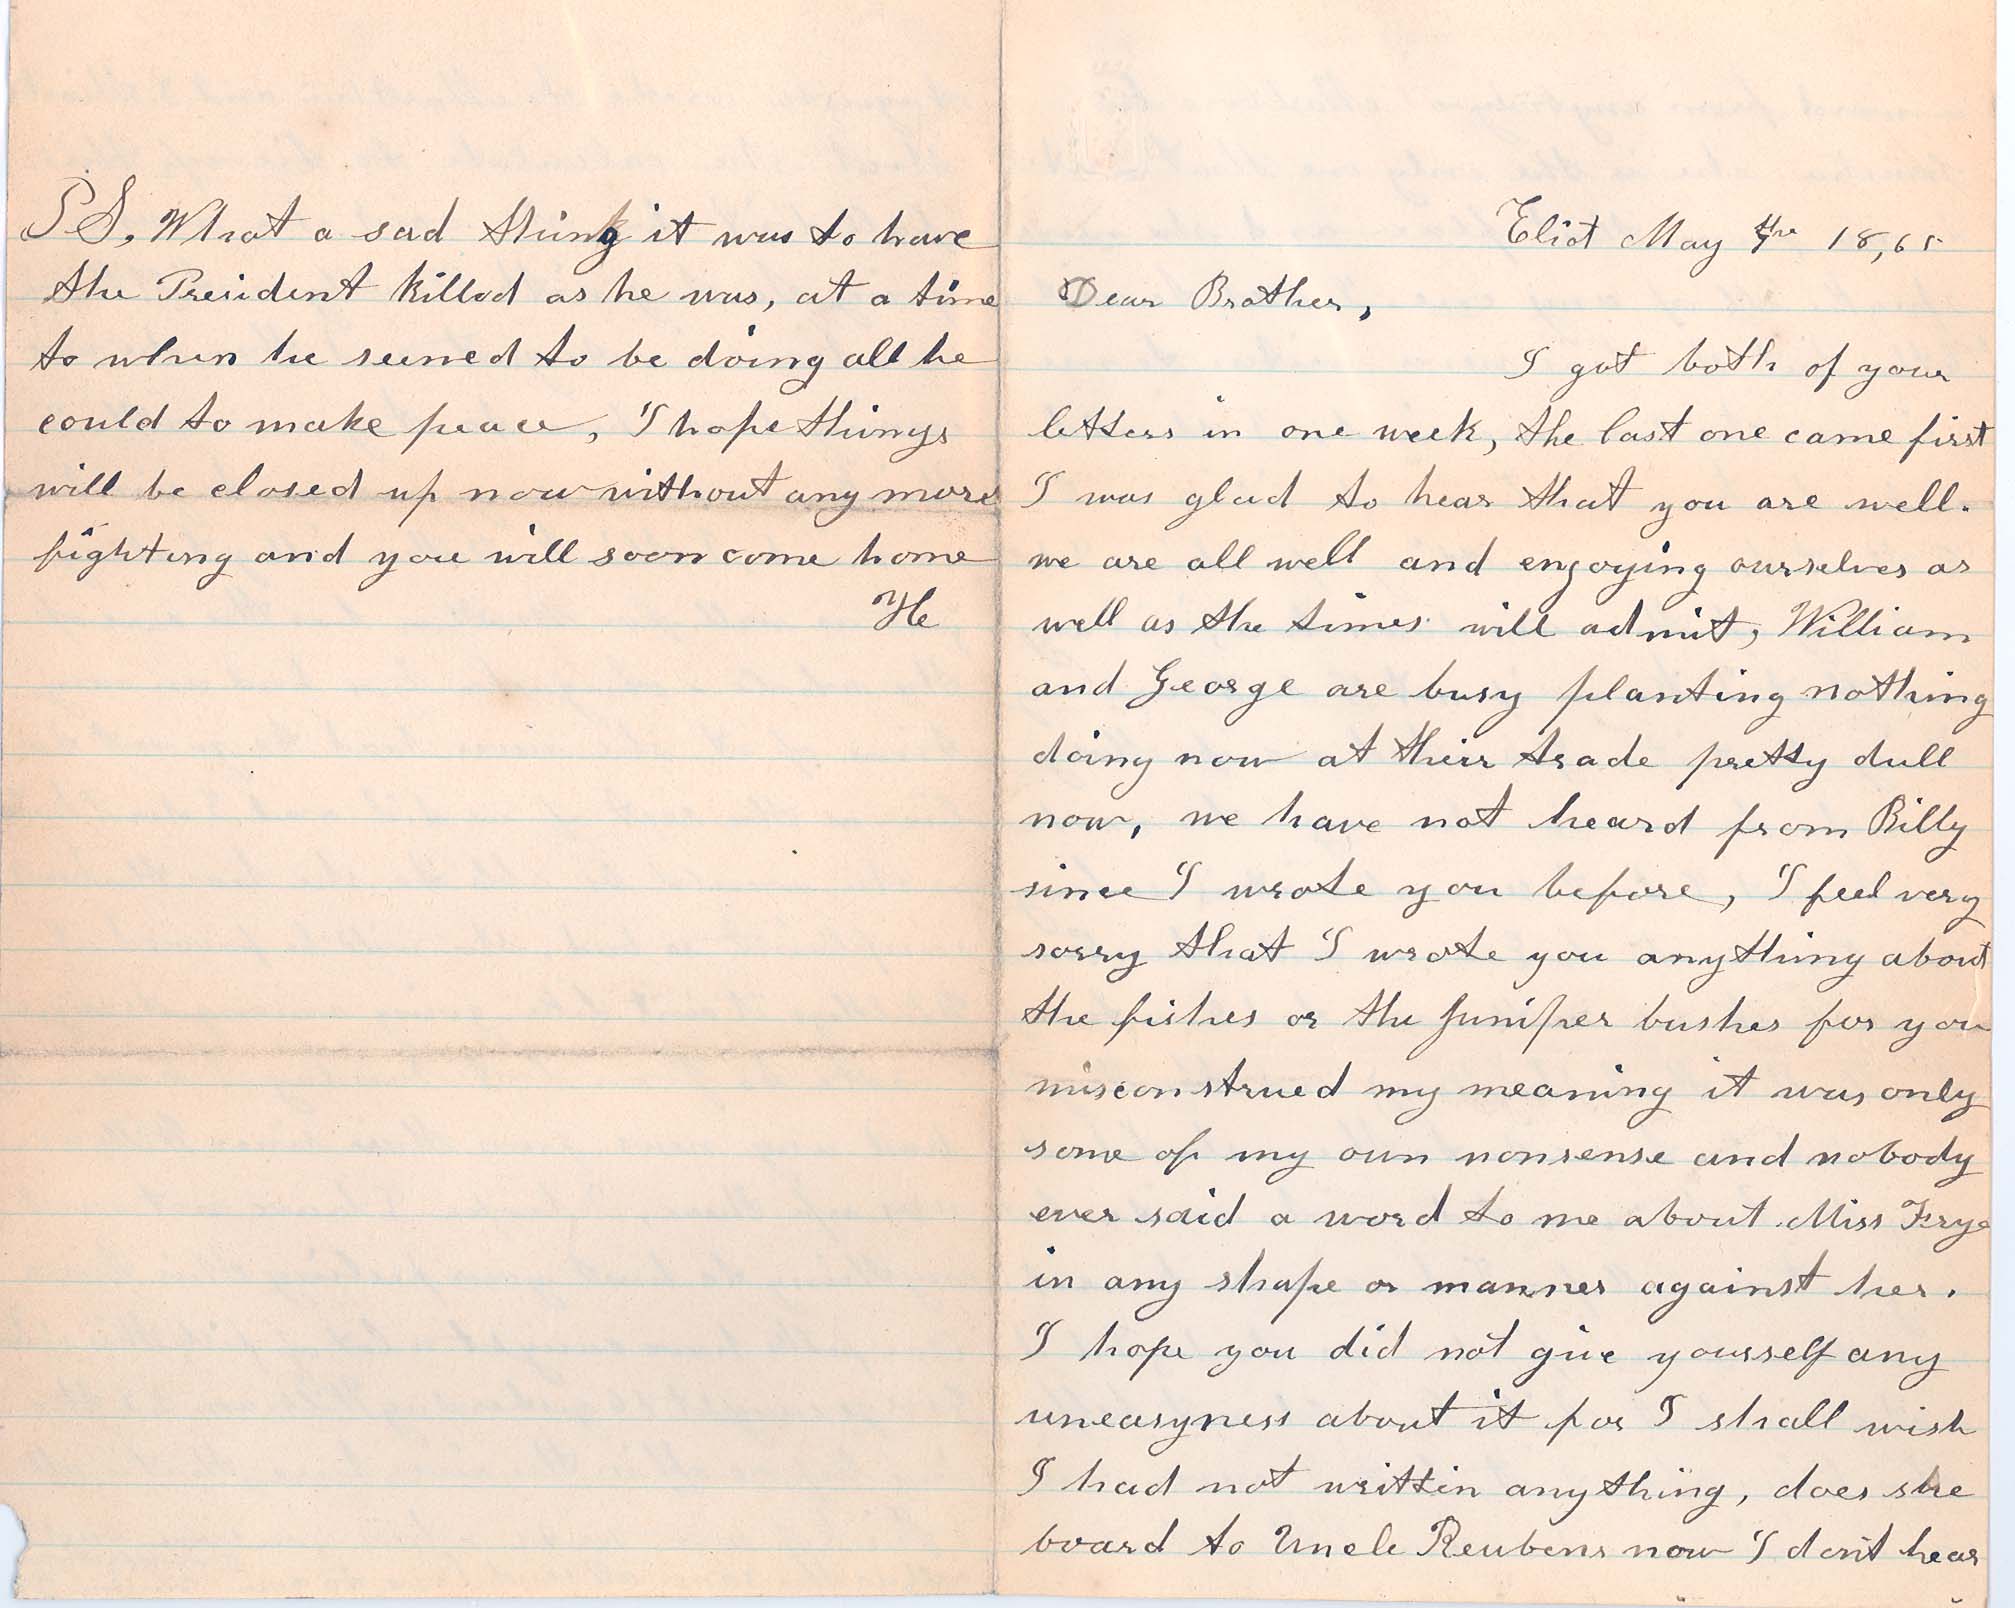 PS, What a sad thing it was to have
the President killed as he was, at a time
to when he seemed to be doing all he
could to make peace, I hope things
will be closed up now without any more
fighting and you will soon come home
He
Eliot May 7the 18,65
Dear Brother,
I got both of your
letters in one week, the last one came first
I was glad to hear that you are well.
we are all well and enjoying ourselves as
well as the times will admit, William
and George are busy planting nothing
doing now at their trade pretty dull
now, we have not heard from Billy
since I wrote you before, I feel very
sorry that I wrote you anything about
the fishes or the Juniper bushes for you
misconstrued my meaning it was only
some of my own nonsense and nobody
ever said a word to me about Miss Frye
in any shape or manner against her.
I hope you did not give yourself any
uneasyness about it for I shall wish
I had not writtin anything, does she
board to Uncle Reubens now I dont hear